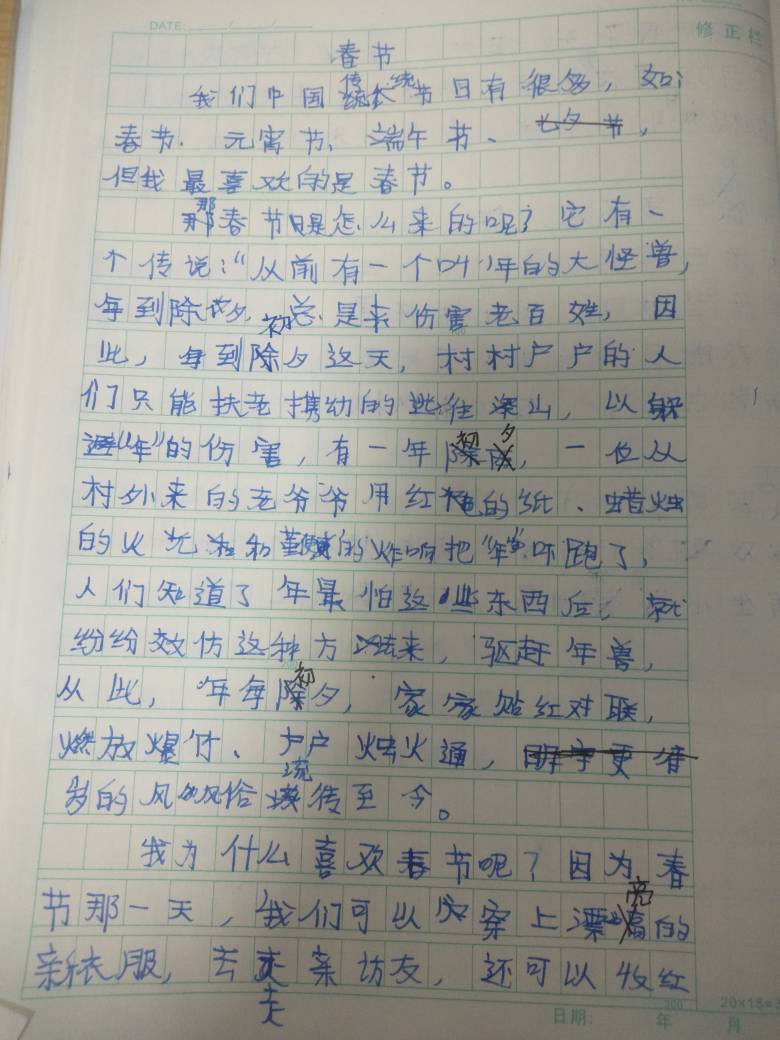 DATE:
修正栏
春节
我们中国传统节日有很多，如：
春节、元宵节、端午节、七夕节，
但我最喜欢的是春节。
那春节是怎么来的呢？它有一
个传说：“从前有一个叫年的大怪兽，
每到除夕，总是来伤害老百姓，因
此，每到初夕这天，村村户户的人
们只能扶老携幼的逃往深山，以躲
避“年”的伤害，有一年初夕，一位从
村外来的老爷爷用红色的纸、蜡烛
的火光和的炸响把“年”吓跑了，
人们知道了年最怕这些东西后，就
纷纷效仿这种方法来，驱赶年兽，
从此，年每初夕，家家贴红对联，
燃放爆竹、户户烛火通，守更待
岁的风俗流传至今。
我为什么喜欢春节呢？因为春
节那一天，我们可以穿上漂亮的
新衣服，去走亲访友，还可以收红
300
20×15=3
日期： 年 月